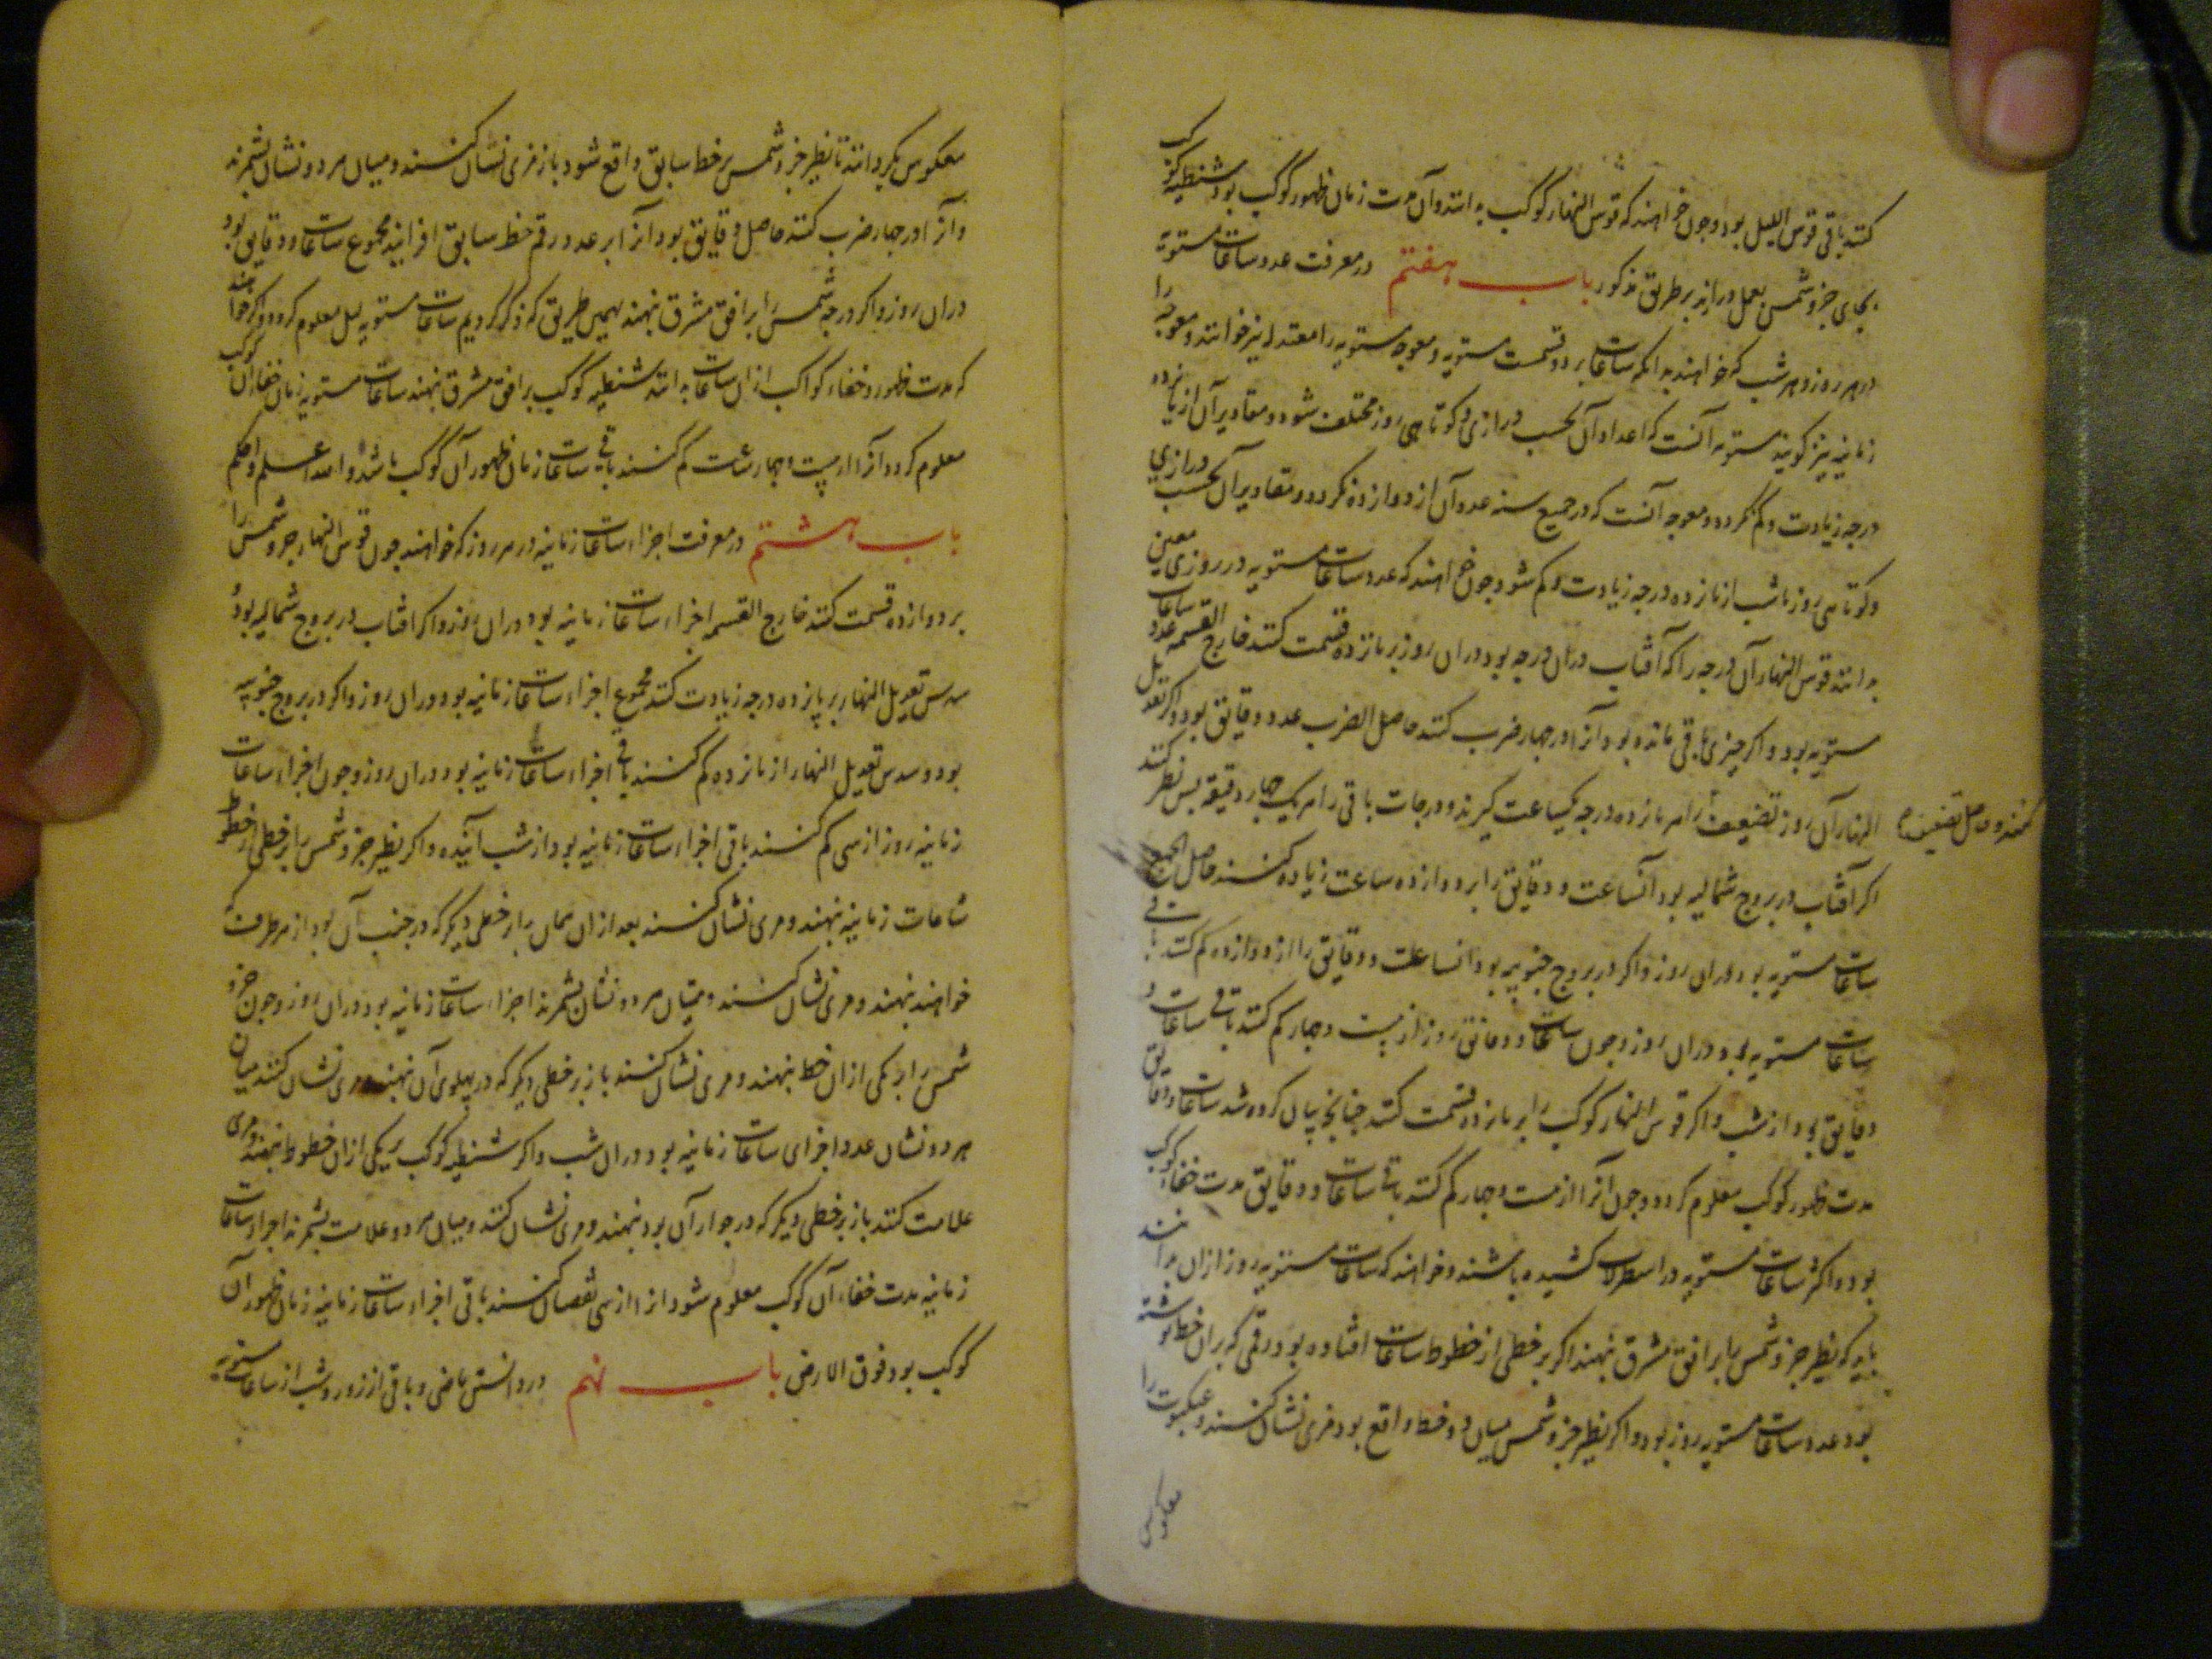 کنند باقی قوس اللیل بود و چون خواهند که قوس النهار کوکب بدانند و آن مدت زمان ظهور کوکب بود شظیه کوکب
بجای جزو شمس بعمل درارند بر طریق مذکور باب هفتم در معرفت عدد ساعات مستویه
در هر روز و هر شب که خواهند بدانکه ساعات بر دو قسمست مستویه و معوجه مستویه را معتدله نیز خوانند و معوجه را
زمانیه نیز کویند مستویه آنست که اعداد آن بحسب درازی و کوتاهی روز مختلف شود و مقادیر آن از پانزده
درجه زیادت و کم نکردد و معوجه آنست که در جمیع سنه عدد آن از دوازده نکردد و مقادیر آن بحسب درازی
و کوتاهی روز یا شب از پانزده درجه زیادت و کم شود چون خواهند که عدد ساعات مستویه در روزی معین
بدانند قوس النهار آن درجه را که آفتاب دران درجه بود دران روز بر پانزده قسمت کنند خارج القسمه عدد ساعات
مستویه بود و اکر چیزی باقی مانده بود آنرا در چهار ضرب کنند حاصل الضرب عدد دقایق بود و اکر تعدیل
النهار آن روز تضعیف را هر پانزده درجه یکساعت کیرند و درجات باقی را هر یک چهار دقیقه پس نظر کنند
کنند و حاصل تضعیف
اکر آفتاب در بروج شمالیه بود آنساعت و دقایق را بر دوازده ساعت زیاده کنند حاصل الجمع
ساعات مستویه بود دران روز و اکر در بروج جنوبیه بود آنساعات و دقایق را از دوازده کم کنند باقی
ساعات مستویه بود دران روز و چون ساعات و دقایق روز از بیست و چهار کم کنند باقی ساعات و
دقایق بود از شب و اکر قوس النهار کوکب را بر پانزده قسمت کنند چنانچه بیان کرده شد ساعات و دقایق
مدت ظهور کوکب معلوم کردد و چون آنرا از بیست و چهار کم کنند باقی ساعات و دقایق مدت خفاء کوکب
بود و اکر ساعات مستویه در اسطرلاب کشیده باشند و خواهند که ساعات مستویه روز ازان بدانند
باید که نظیر جزو شمس را بر افق مشرق نهند اکر بر خطی از خطوط ساعات افتاده بود رقمی که بران خط نوشته
بود عدد ساعات مستویه روز بود و اکر نظیر جزو شمس میان دو خط واقع بود مری نشان کنند و عنکبوت را
معکوس
معکوس بکردانند تا نظیر جزو شمس بر خط سابق واقع شود باز مری نشان کنند و میان هر دو نشان بشمرند
و آنرا در چهار ضرب کنند حاصل دقایق بود آنرا بر عدد رقم خط سابق افزایند مجموع ساعات و دقایق بود
دران روز و اکر درجه شمس را بر افق مشرق نهند بهمین طریق که ذکر کردیم ساعات مستویه لیل معلوم کردد و اکر خواهند
که مدت ظهور و خفاء کواکب ازان ساعات بدانند شظیه کوکب بر افق مشرق نهند ساعات مستویه زمان خفاء آن کوکب
معلوم کردد آنرا از بیست و چهار ساعت کم کنند باقی ساعات زمان ظهور آن کوکب باشد والله اعلم و احکم
باب هشتم در معرفت اجزاء ساعات زمانیه در هر روز که خواهند چون قوس النهار جزو شمس را
بر دوازده قسمت کنند خارج القسمه اجزاء ساعات زمانیه بود دران روز و اکر افتاب در بروج شمالیه بود
سدس تعدیل النهار بر پانزده درجه زیادت کنند مجموع اجزاء ساعات زمانیه بود دران روز و اکر در بروج جنوبیه
بود و سدس تعدیل النهار از پانزده کم کنند باقی اجزاء ساعات زمانیه بود دران روز و چون اجزاء ساعات
زمانیه روز از سی کم کنند باقی اجزاء ساعات زمانیه بود از شب آینده و اکر نظیر جزو شمس را بر خطی از خطوط
ساعات زمانیه نهند و مری نشان کنند بعد ازان همان را بر خطی دیکر که در جنب آن بود از هر طرف که
خواهند نهند و مری نشان کنند و میان هر دو نشان بشمرند اجزاء ساعات زمانیه بود دران روز و چون جزو
شمس را بر یکی ازان خط نهند و مری نشان کنند باز بر خطی دیکر که در پهلوی آن نهند و مری نشان کنند میان
هر دو نشان عدد اجزای ساعات زمانیه بود دران شب و اکر شظیه کوکب بر یکی ازان خطوط نهند و مری
علامت کنند باز بر خطی دیکر که در جوار آن بود نهند و مری نشان کنند و میان هر دو علامت بشمرند اجزاء ساعات
زمانیه مدت خفاء آن کوکب معلوم شود آنرا از سی نقصان کنند باقی اجزاء ساعات زمانیه زمان ظهور آن
کوکب بود فوق الارض باب نهم در دانستن ماضی و باقی از روز و شب از ساعات مستویه